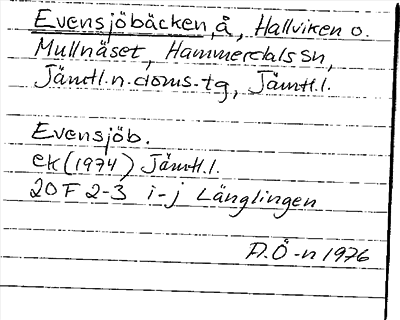 Evensjöbäcken, å, Hallviken o.
Mullnäset, Hammerdals sn,
Jämtl. n. doms-tg, Jämtl. l.
Evensjöb.
ek (1974) Jämtl. l.
20 F 2-3 i-j Länglingen
A. Ö-n 1976